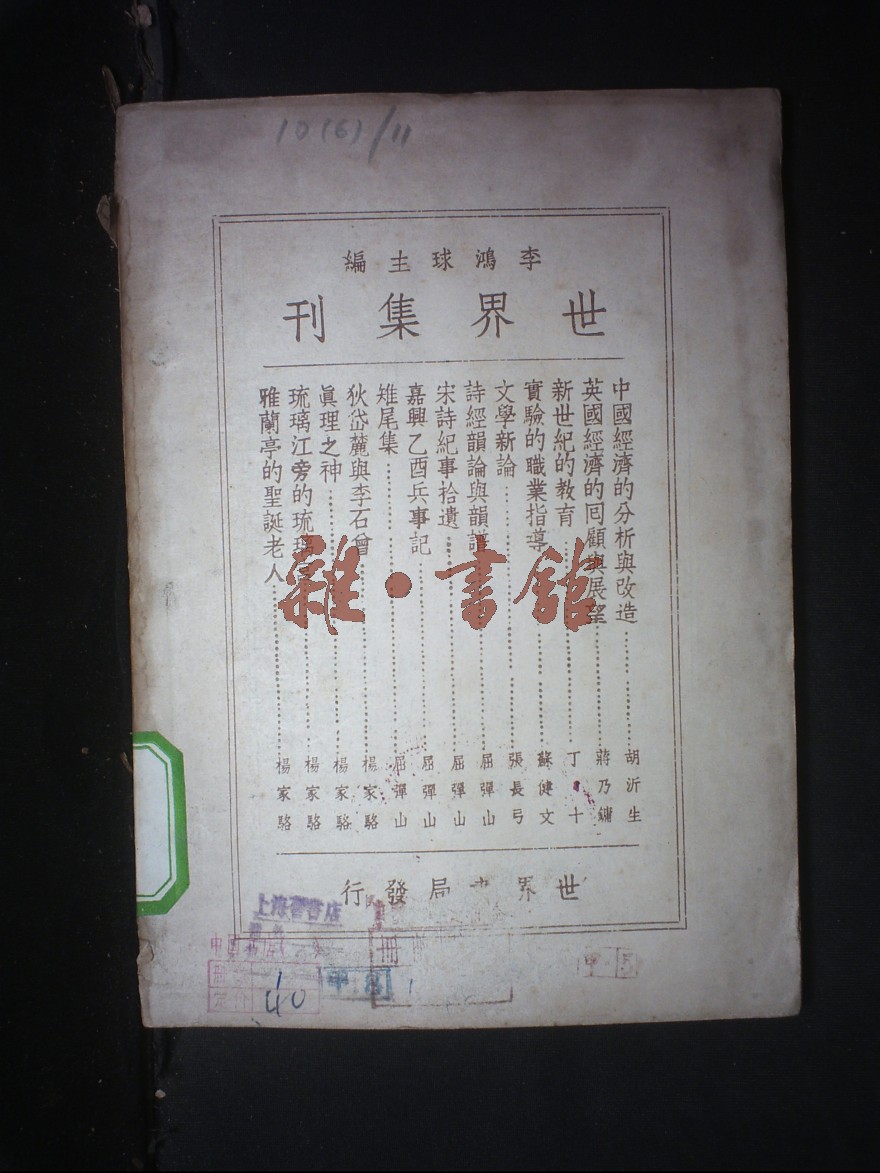 10(6)/11
李鴻球主編
世界集刊
中國經濟的分析與改造……胡沂生
英國經濟的囘顧與展望……蔣乃鏞
新世紀的教育……丁十
實驗的職業指導……蘇健文
文學新論……張長弓
詩經韻論與韻譜……屈彈山
宋詩紀事拾遺……屈彈山
嘉興乙酉兵事記……屈彈山
雉尾集……屈彈山
狄岱麓與李石曾……楊家駱
眞理之神……楊家駱
琉璃江旁的琉璃……楊家駱
雅蘭亭的聖誕老人……楊家駱
雜·書館
世界書局發行
上海舊書店
冊
40